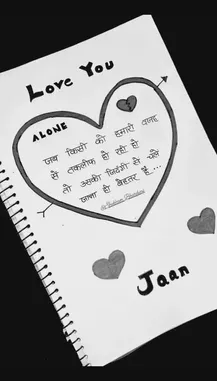 Love You
ALONE
जब किसी को हमारी वजह
से तकलीफ हो रही हो
तो उसकी जिंदगी से चले
जाना ही बेहतर है...
Jaan